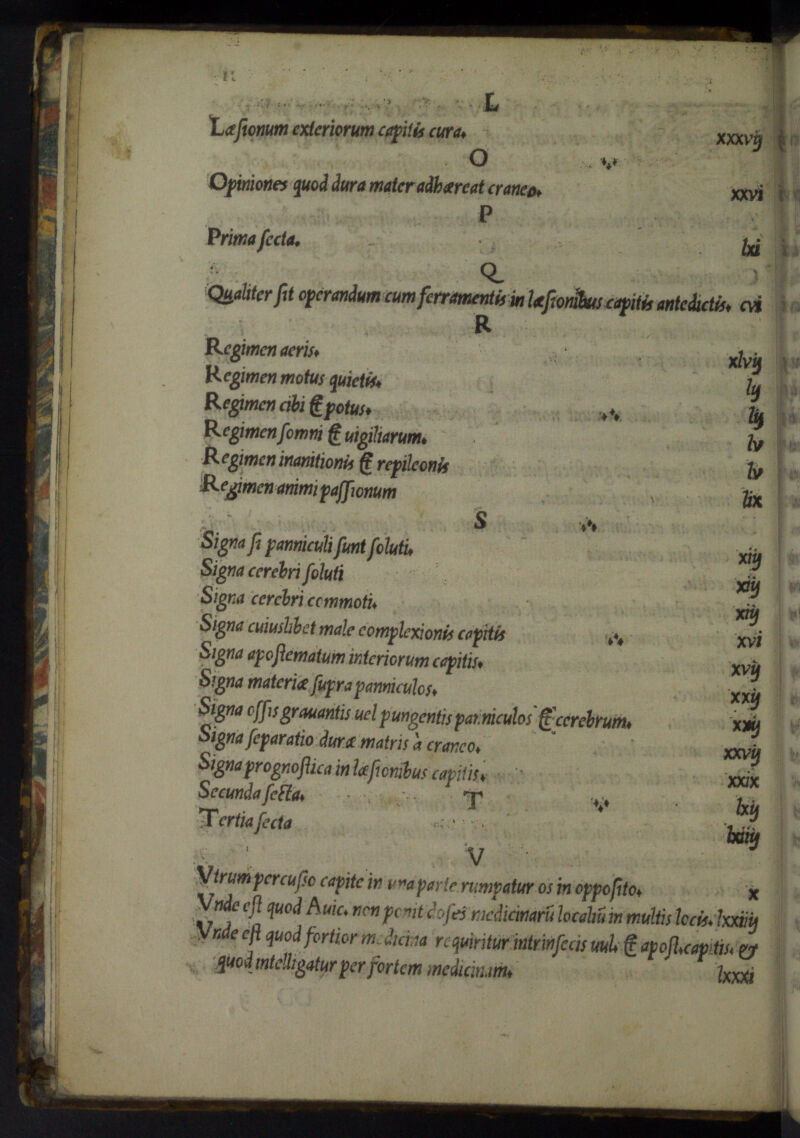 L
Læſionum exteriorum capitis cura. xxxvij
O
Opiniones quod dura mater adhæreat craneo. xxvi
P
Prima ſecta. lxi
Q
Qualiter ſit operandum cum ferramentis in læſionibus capitis antedictis. cvi
R
Regimen aeris. xlvij
Regimen motus quietis. lij
Regimen cibi & potus. lij
Regimen ſomni & uigiliarum. lv
Regimen inanitionis & repleonis lv
Regimen animi paſſionum lix
S
Signa ſi panniculi ſunt ſoluti. xiij
Signa cerebri ſoluti xiij
Signa cerebri commoti. xiij
Signa cuiuslibet male complexionis capitis xvi
Signa apoſtematum interiorum capitis. xvij
Signa materiæ ſupra panniculos. xxij
Signa oſſis grauantis uel pungentis panniculos & cerebrum. xxij
Signa ſeparatio duræ matris à craneo. xxvij
Signa prognoſtica in læſionibus capitis. xxix
Secunda ſecta. lxij
T
Tertia ſecta lxiiij
V
Vtrum percuſſo capite in vna parte rumpatur os in oppoſito. x
Vnde eſt quod Auic. non ponit doſes medicinarū localiū in multis locis. lxxiiij
Vnde eſt quod fortior medicina requiritur intrinſecis uul. & apoſt. capitis. &
quod intelligatur per fortem medicinam. lxxxi